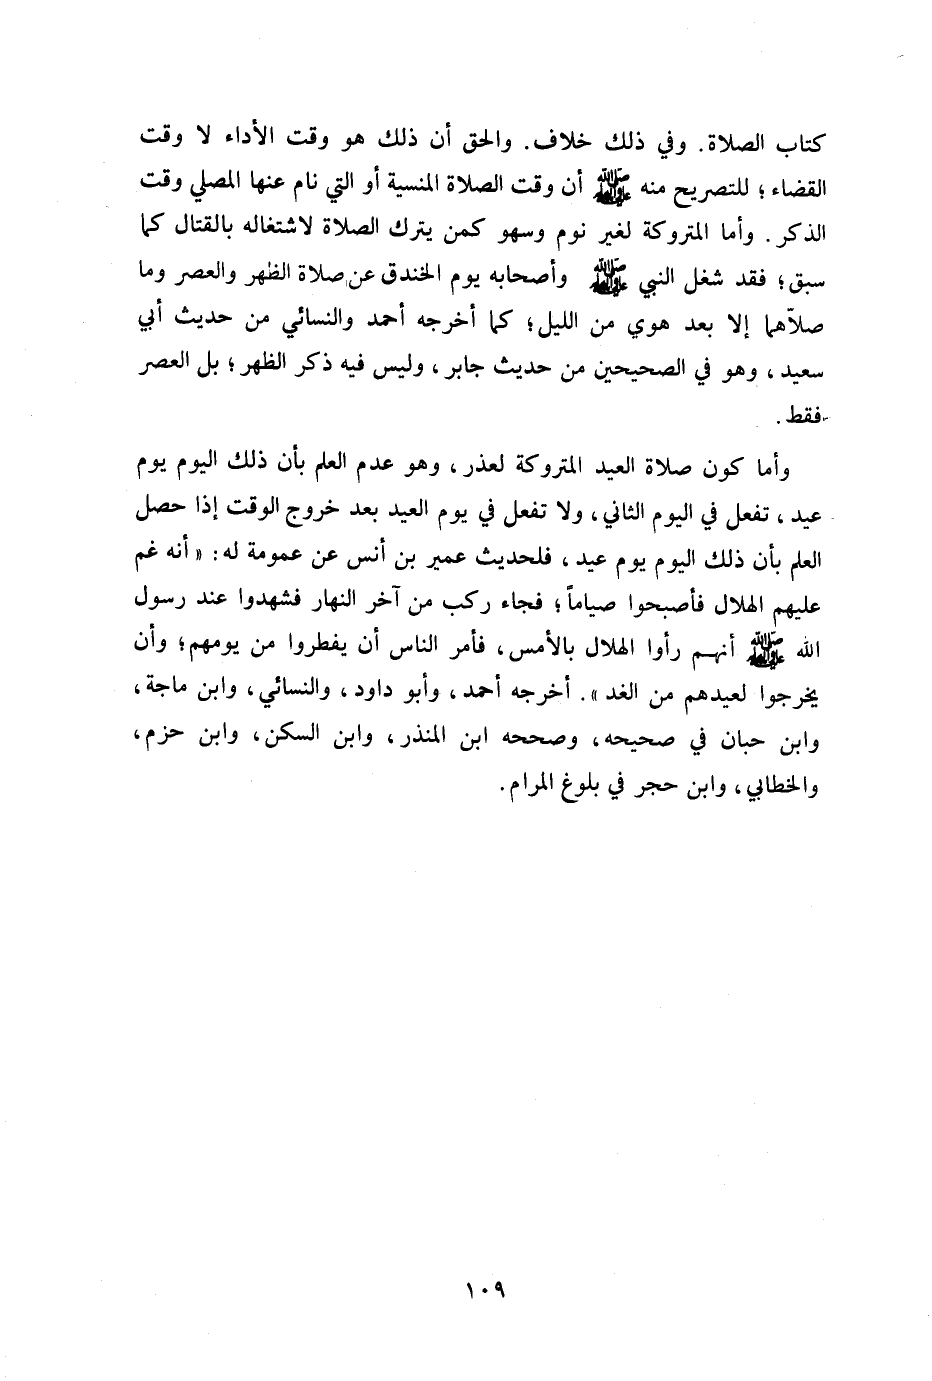 كتاب الصلاة. وفي ذلك خلاف. والحق أن ذلك هو وقت الأداء لا وقت
القضاء؛ للتصريح منه ﷺ أن وقت الصلاة المنسية أو التي نام عنها المصلي وقت
الذكر. وأما المتروكة لغير نوم وسهو كمن يترك الصلاة لاشتغاله بالقتال كما
سبق؛ فقد شغل النبي ﷺ وأصحابه يوم الخندق عن صلاة الظهر والعصر وما
صلاّهما إلا بعد هوي من الليل؛ كما أخرجه أحمد والنسائي من حديث أبي
سعيد، وهو في الصحيحين من حديث جابر، وليس فيه ذكر الظهر؛ بل العصر
فقط.
وأما كون صلاة العيد المتروكة لعذر، وهو عدم العلم بأن ذلك اليوم يوم
عيد، تفعل في اليوم الثاني، ولا تفعل في يوم العيد بعد خروج الوقت إذا حصل
العلم بأن ذلك اليوم يوم عيد، فلحديث عمير بن أنس عن عمومة له: «أنه غم
عليهم الهلال فأصبحوا صياماً؛ فجاء ركب من آخر النهار فشهدوا عند رسول
الله ﷺ أنهم رأوا الهلال بالأمس، فأمر الناس أن يفطروا من يومهم؛ وأن
يخرجوا لعيدهم من الغد». أخرجه أحمد، وأبو داود، والنسائي، وابن ماجة،
وابن حبان في صحيحه، وصححه ابن المنذر، وابن السكن، وابن حزم،
والخطابي، وابن حجر في بلوغ المرام.
١٠٩